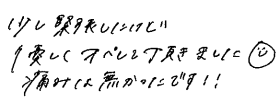 少し緊張したけど
優しくオペして頂きました☺
痛みは無かったです!!